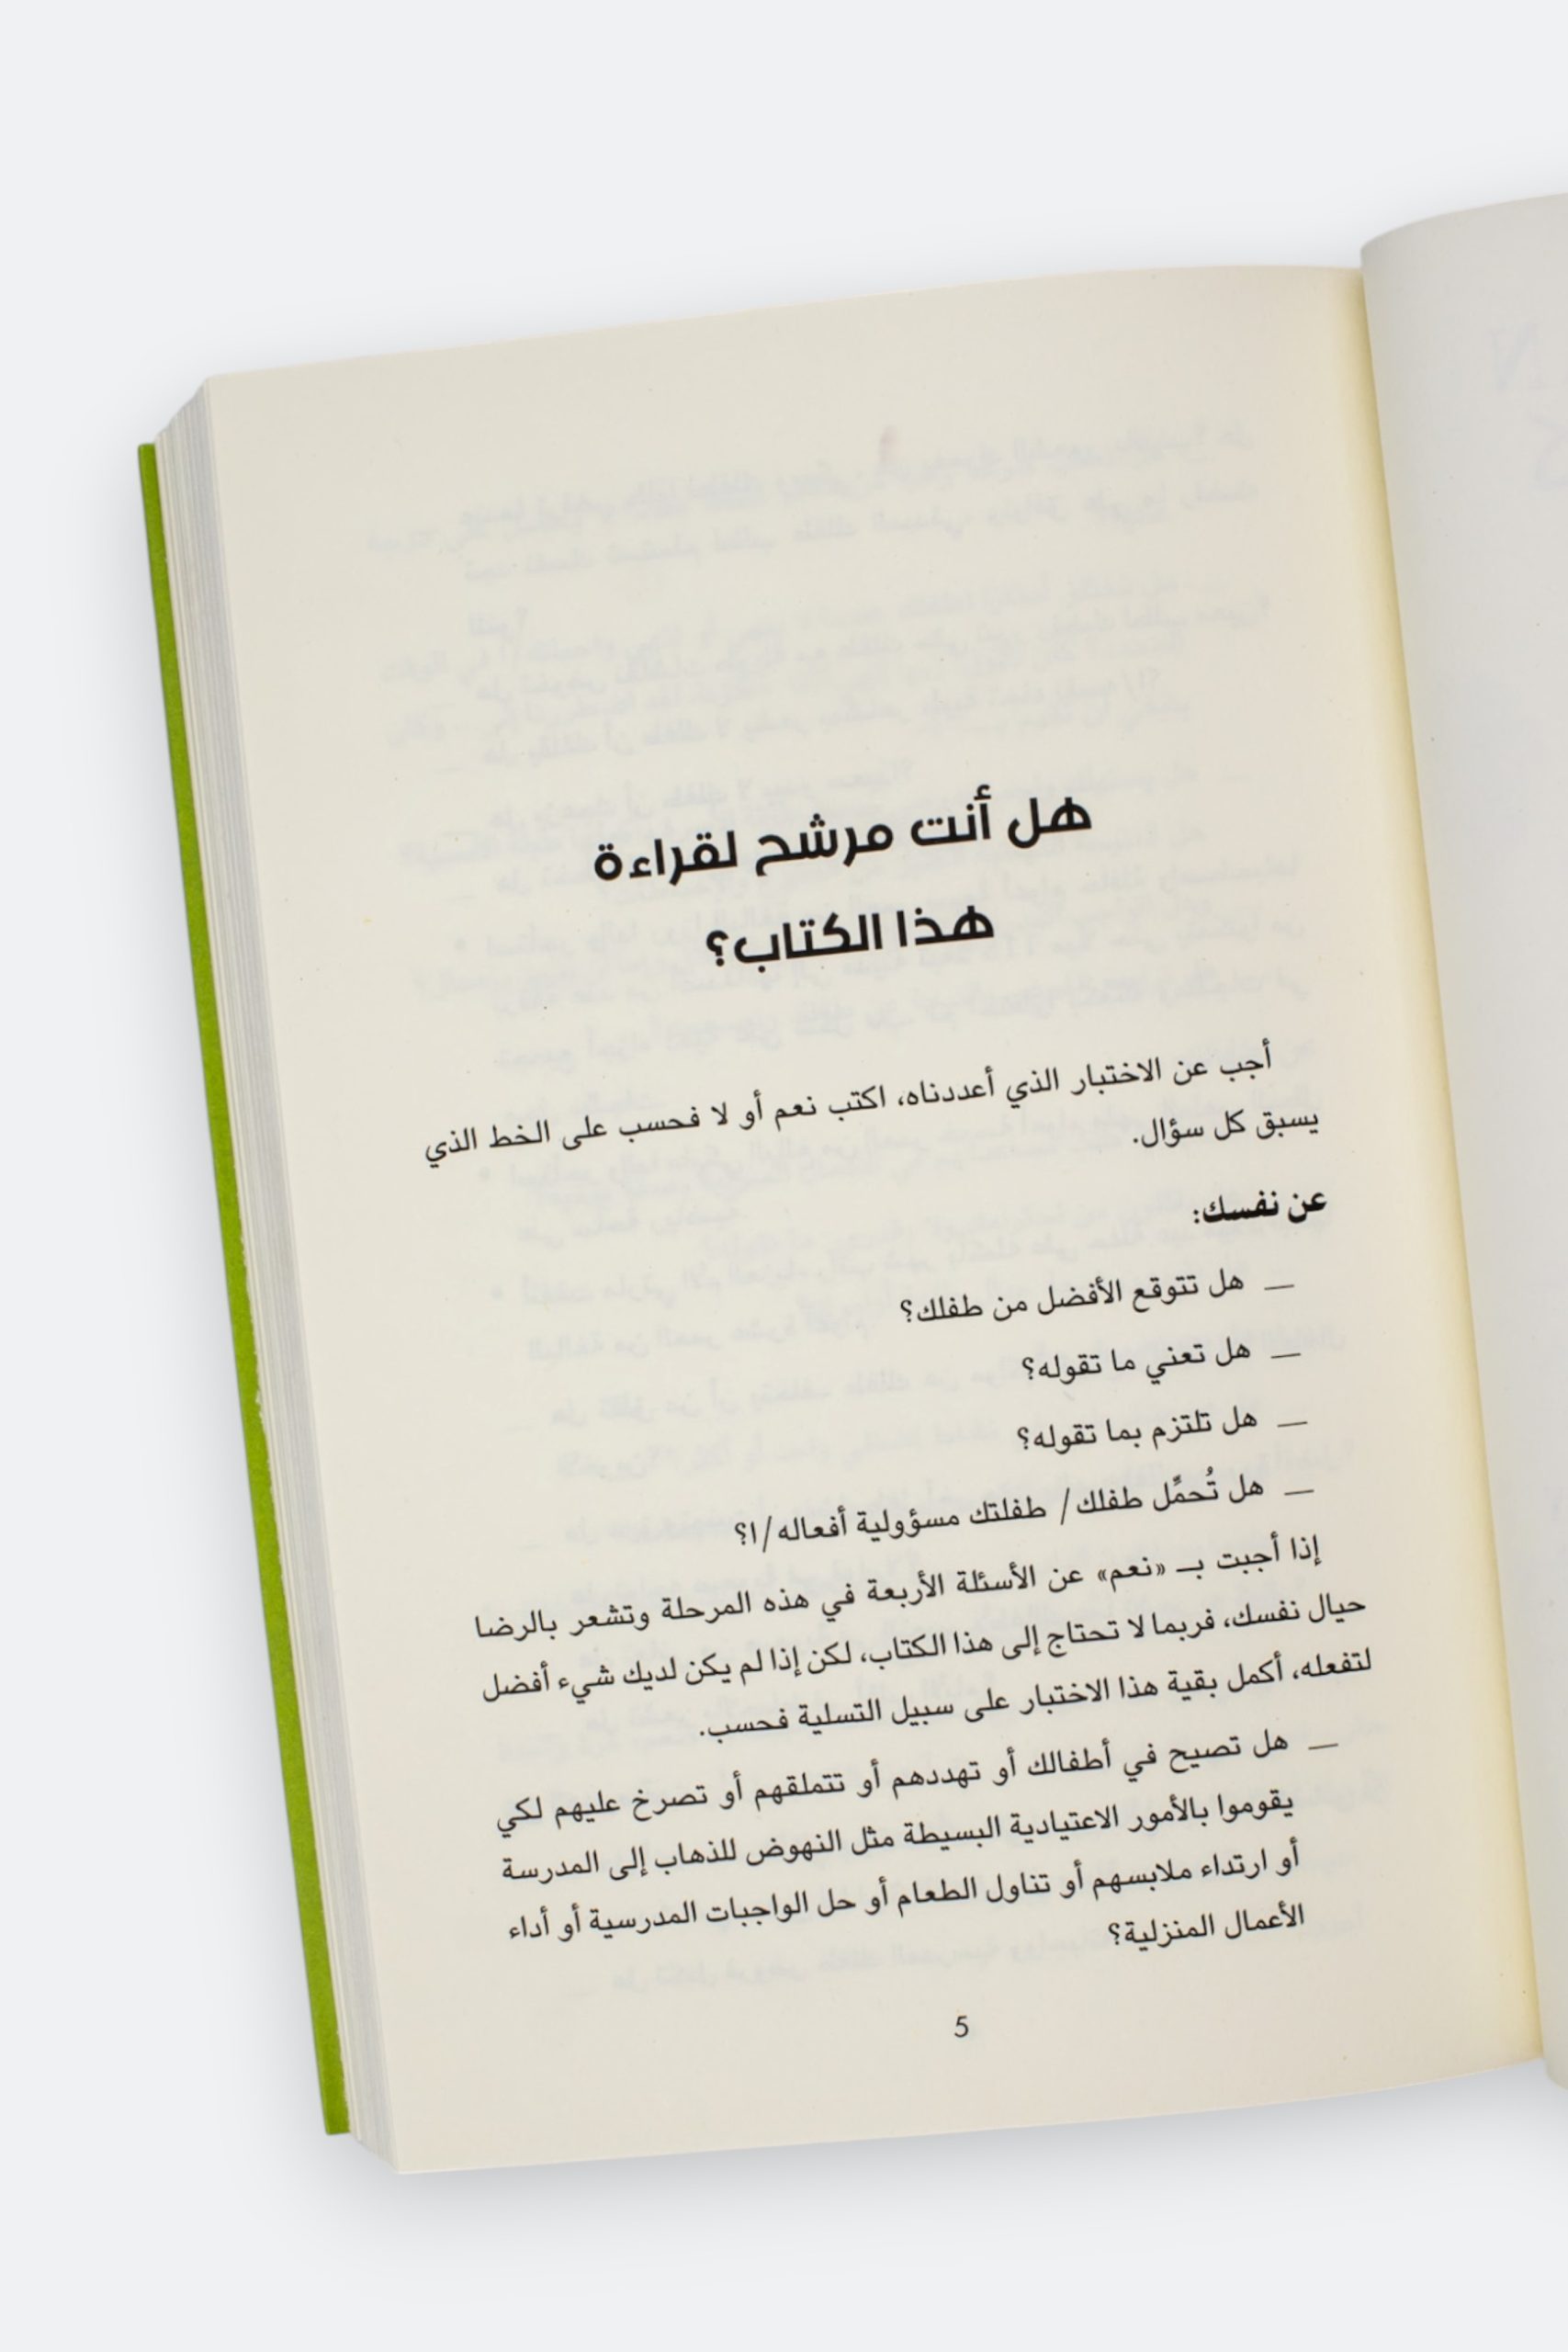 هل أنت مرشح لقراءة
هذا الكتاب؟
أجب عن الاختبار الذي أعددناه، اكتب نعم أو لا فحسب على الخط الذي
يسبق كل سؤال.
عن نفسك:
__ هل تتوقع الأفضل من طفلك؟
__ هل تعني ما تقوله؟
__ هل تلتزم بما تقوله؟
__ هل تُحمِّل طفلك/ طفلتك مسؤولية أفعاله/ا؟
إذا أجبت بـ «نعم» عن الأسئلة الأربعة في هذه المرحلة وتشعر بالرضا
حيال نفسك، فربما لا تحتاج إلى هذا الكتاب، لكن إذا لم يكن لديك شيء أفضل
لتفعله، أكمل بقية هذا الاختبار على سبيل التسلية فحسب.
__ هل تصيح في أطفالك أو تهددهم أو تتملقهم أو تصرخ عليهم لكي
يقوموا بالأمور الاعتيادية البسيطة مثل النهوض للذهاب إلى المدرسة
أو ارتداء ملابسهم أو تناول الطعام أو حل الواجبات المدرسية أو أداء
الأعمال المنزلية؟
5